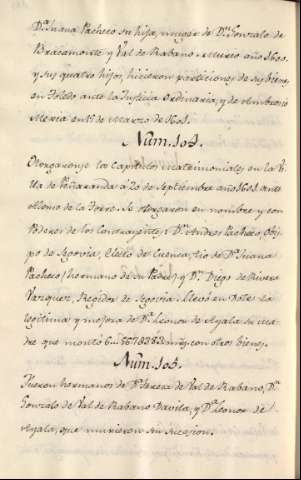 Dª Juana Pacheco su hija, muger de Dⁿ Gonzalo de
Bracamonte y Val de Rabano. Murio año 1600.
y sus quatro hijos, hicieron particiones de sus bienes
en Toledo ante la Justicia Ordinaria, y de Ambrosio
Mexia en 15 de Marzo de 1601.
Num. 104.
Otorgaronse las Capitulaciones matrimoniales en la Vi
lla de Peñaranda à 20 de Septiembre año 1601. ante
de la Torre. Se otorgaron en nombre y con
Poderes de los Contrayentes: Dⁿ Andres Pacheco, Obis
po de Segovia, Electo de Cuenca, tio de Dª Juana
Pacheco (hermano de su Padre) y Dⁿ Diego de Rivera
Vazquez, Regidor de Segovia. Llevò en Dote la
legitima y mejora de Dª Leonor de Ayala su ma
dre que montò con otros bienes.
Num. 105.
Fueron hermanos de Dª Teresa de Val de Rabano, Dⁿ
Gonzalo de Val de Rabano Davila, y Dª Leonor de
Ayala, que murieron sin sucesion.